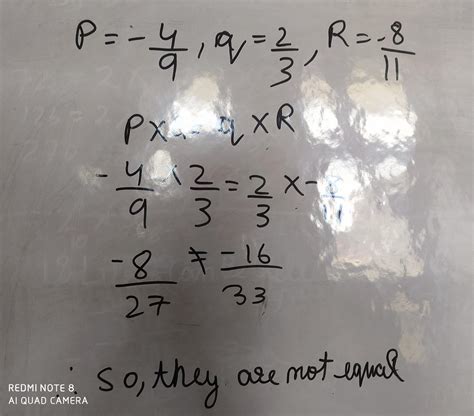 P = -4/9, q = 2/3, R = -8/11
P× = q × R
-4/9 × 2/3 = 2/3 × -
-8/27 ≠ -16/33
∴ so, they are not equal
REDMI NOTE 8
AI QUAD CAMERA